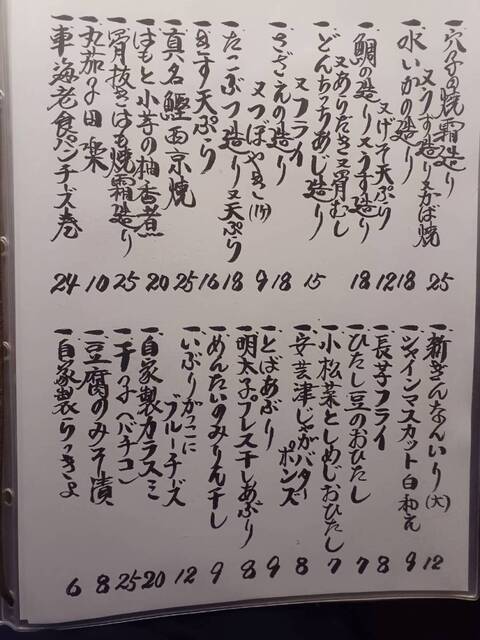 一穴子の焼霜造り
又うす造り又かば焼 25
一水いかの造り 18
又げそ天ぷら 12
一鯛の造り又うす造り 18
又ありだき又骨むし
一どんちっちあじ造り 15
又フライ
一さざえの造り 18
又つぼやき(1ケ) 9
一たこぶつ造り又天ぷら 18
一きす天ぷら 16
一真名鰹西京焼 25
一はもと小芋の柚香煮 20
一骨抜きはも焼霜造り 25
一丸茄子田楽 10
一車海老食パンチーズ巻 24
一新ぎんなんいり(大) 12
一シャインマスカット白和え 9
一長芋フライ 8
一ひたし豆のおひたし 7
一小松菜としめじおひたし 7
一安芸津じゃがバター
ポンズ 8
一とばあぶり 9
一明太子プレス干しあぶり 8
一めんたいのみりん干し 9
一いぶりがっこに
ブルーチーズ 12
一自家製カラスミ 20
一干子(バチコ) 25
一豆腐のみそ漬 8
一自家製らっきょ 6